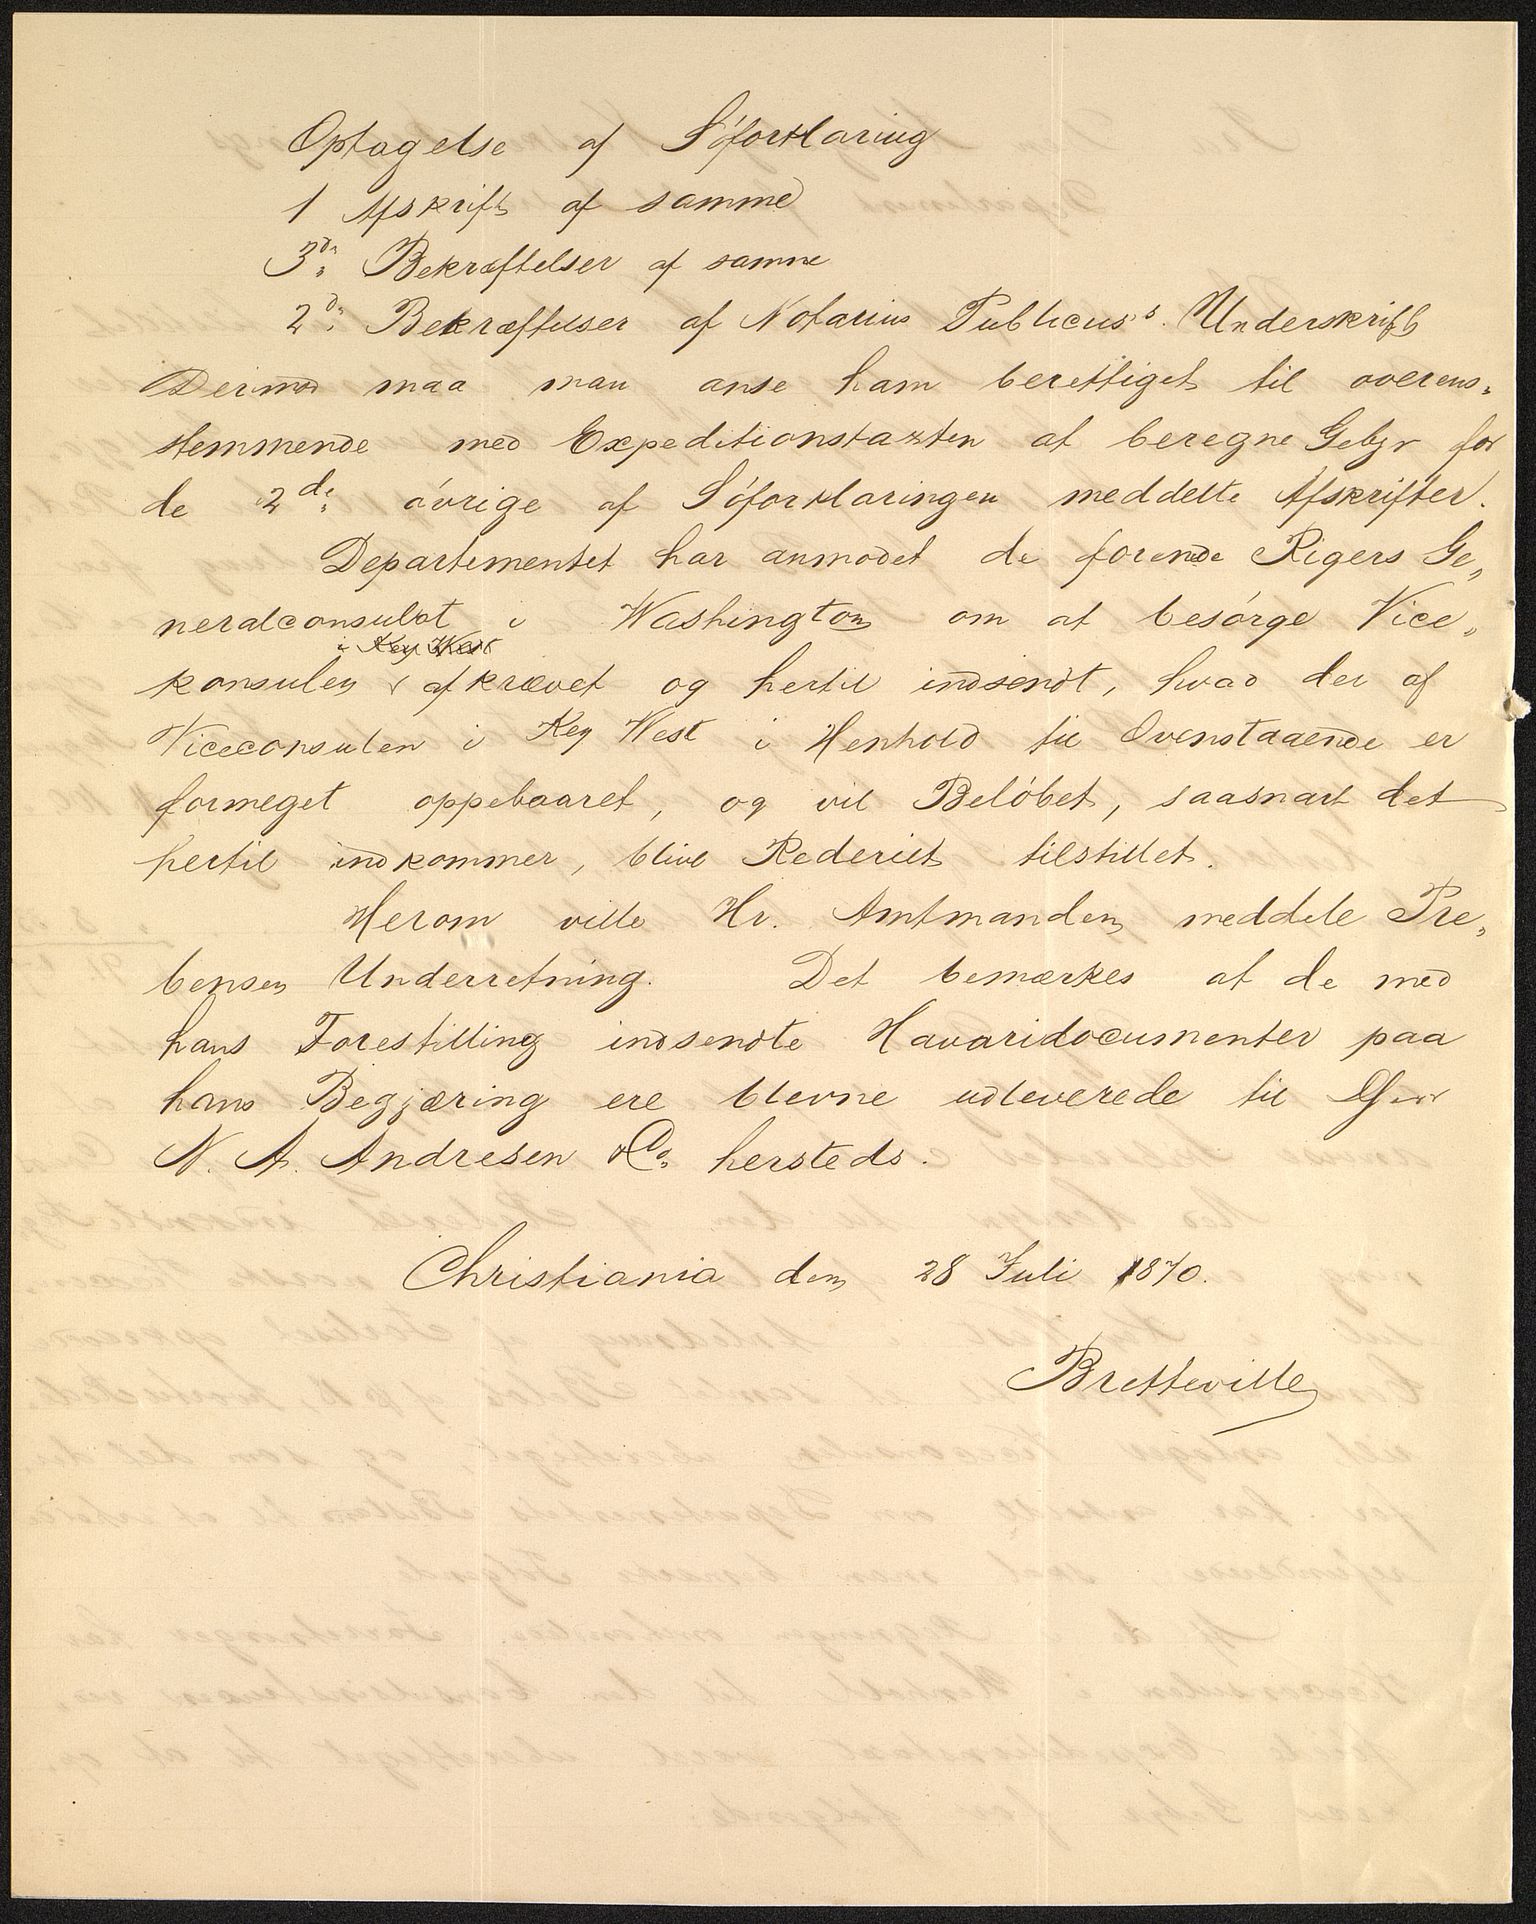 Optagelse af Søforklaring
1 Afskrift af samme
3de Bekræftelser af samme
2de Bekræftelser af Notarius Publicus's Underskrift
Derimod maa man anse ham berettiget til overens„
stemmende med Expeditionstaxten at beregne Gebyr for
de 2de øvrige af Søforklaringen meddelte Afskrifter.
Departementet har anmodet de forende Rigers Ge„
neralconsulat i Washington om at besørge Vice„
i Key West
konsulen afkrævet og hertil indsendt, hvad der af
Viceconsulen i Key West i Henhold til Ovenstaaende er
formeget oppebaaret, og vil Beløbet, saasnart det
hertil indkommer, blive Rederiet tilstillet.
Herom ville Hr. Amtmanden meddele Pre„
bensen Underretning. Det bemærkes at de med
hans Forestilling indsendte Havaridocumenter paa
hans Begjæring ere blevne udleverede til
N. A. Andresen & Co. hersteds.
Christiania den 28 Juli 1870.
Bretteville